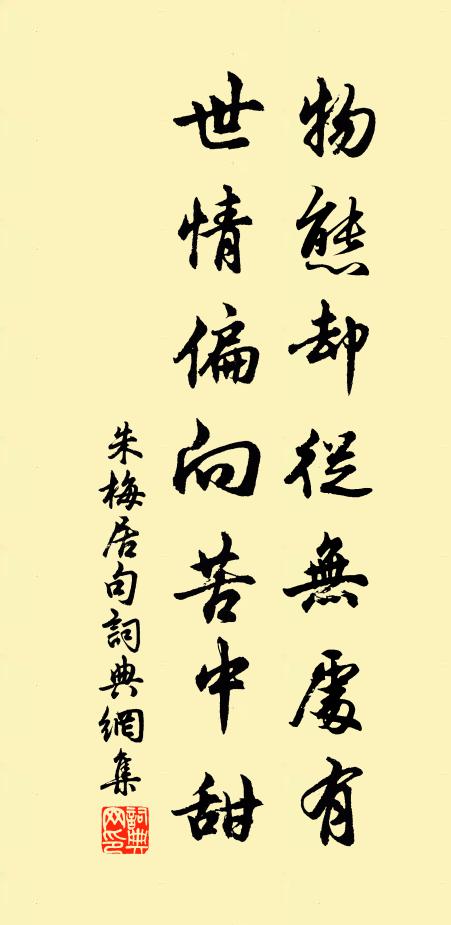 物態却從無處有
世情偏向苦中甜
朱梅居句詞典網集
詞典網印